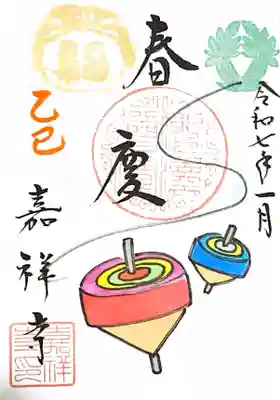 令和七年一月
春慶
乙巳
嘉祥寺